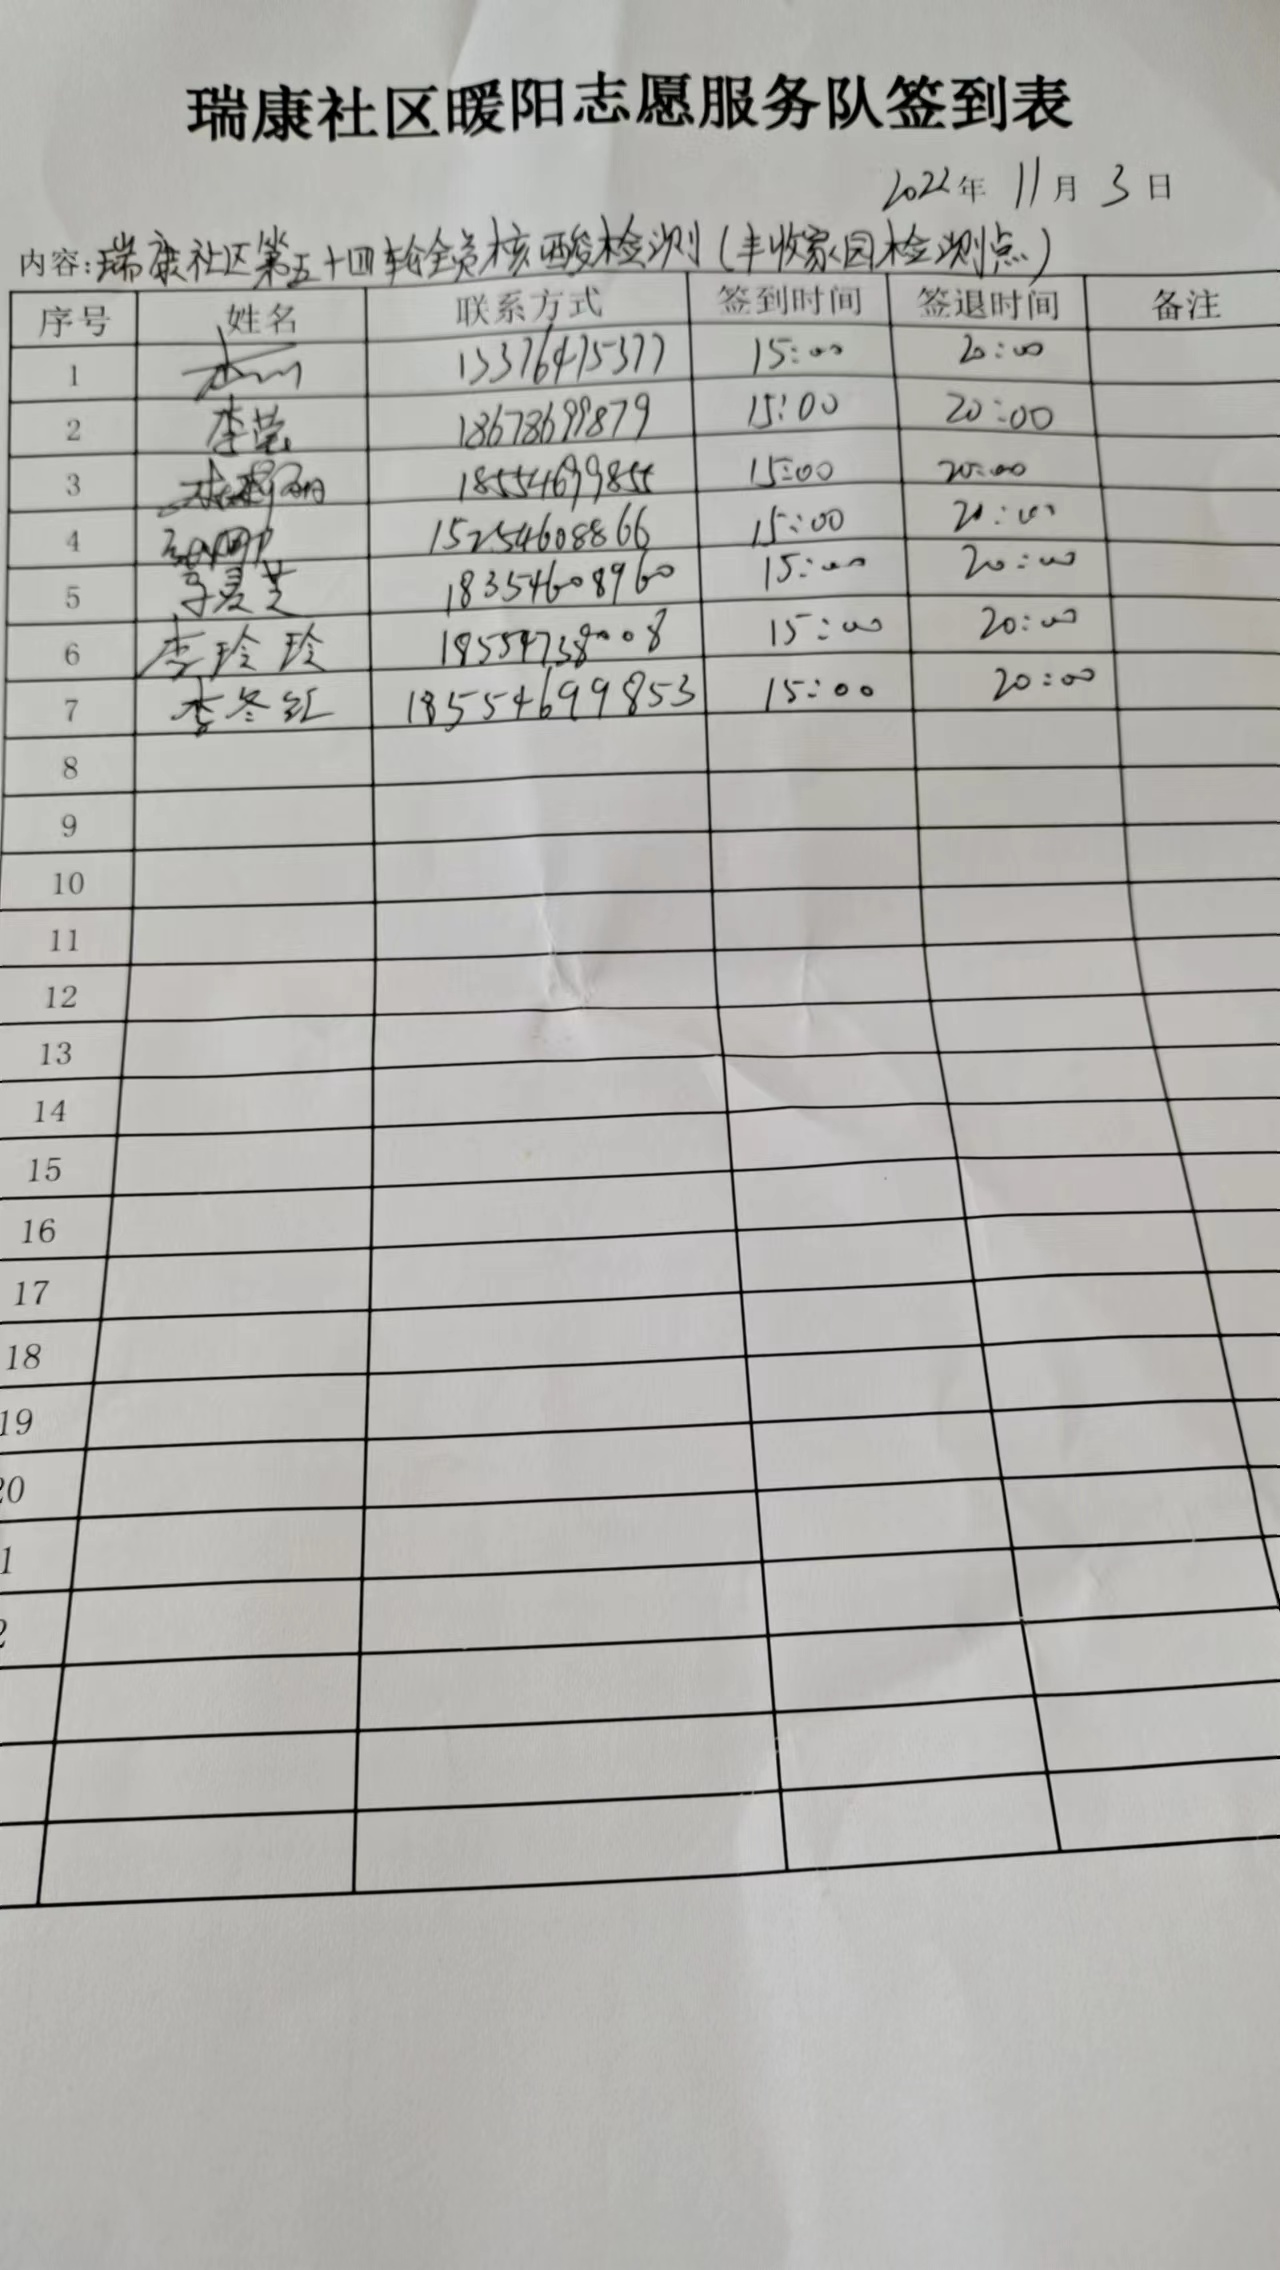 瑞康社区暖阳志愿服务队签到表
2022年 11月 3日
内容:瑞康社区第五十四轮全员核酸检测(丰收家园检测点)
序号 姓名 联系方式 签到时间 签退时间 备注
1 13376475377 15:00 20:00
2 李莹 18678699879 15:00 20:00
3 18554699855 15:00 20:00
4 15254608866 15:00 20:00
5 18354608960 15:00 20:00
6 李玲玲 18554738008 15:00 20:00
7 李冬红 18554699853 15:00 20:00
8
9
10
11
12
13
14
15
16
17
18
19
20
1
2